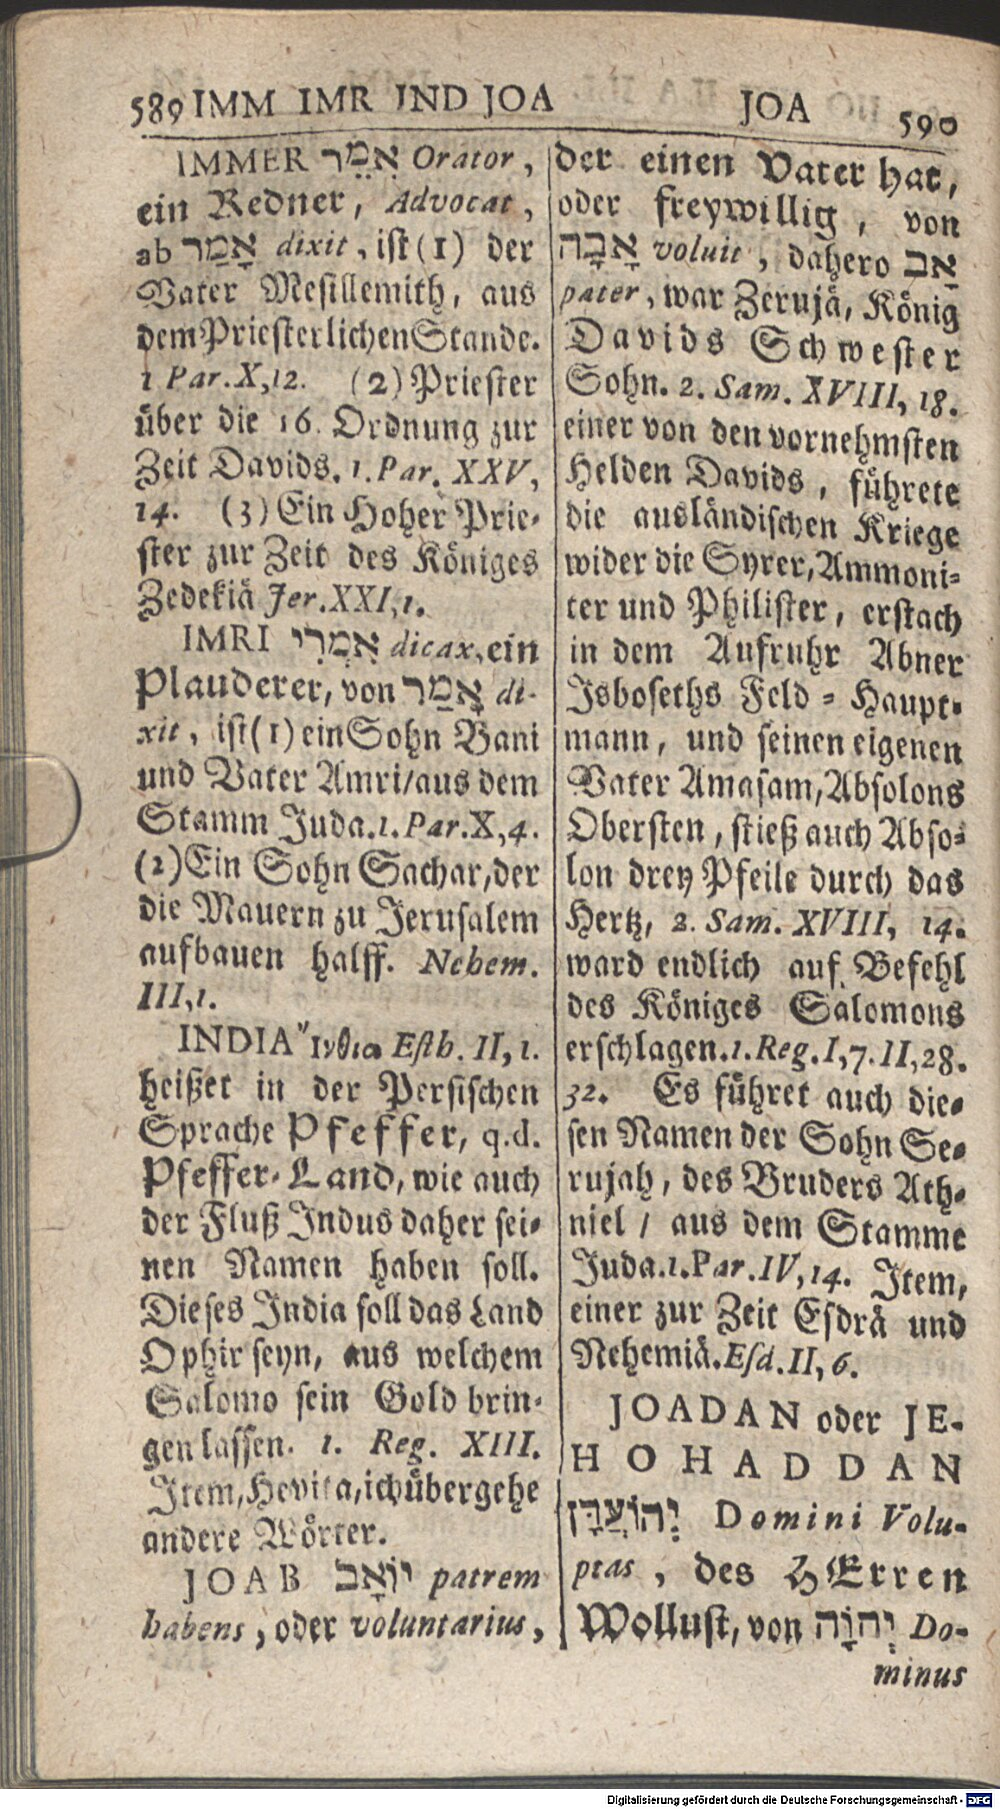 589 IMM IMR IND JOA
IMMER אִמֵּר Orator,
ein Redner, Advocat,
ab אָמַר dixit, ist (1) der
Vater Mesillemith, aus
dem Priesterlichen Stande.
1 Par. X, 12. (2) Priester
über die 16. Ordnung zur
Zeit Davids. 1. Par. XXV,
14. (3) Ein Hoher Prie-
ster zur Zeit des Königes
Zedekiä Jer. XXI, 1.
IMRI אִמְרִי dicax, ein
Plauderer, von אָמַר di-
xit, ist (1) ein Sohn Bani
und Vater Amri/ aus dem
Stamm Juda. 1. Par. X, 4.
(2) Ein Sohn Sachar, der
die Mauern zu Jerusalem
aufbauen halff. Nehem.
III, 1.
INDIA Ἰνθια Esth. II, 1.
heißet in der Persischen
Sprache Pfeffer, q. d.
Pfeffer-Land, wie auch
der Fluß Indus daher sei-
nen Namen haben soll.
Dieses India soll das Land
Ophir seyn, aus welchem
Salomo sein Gold brin-
gen lassen. 1. Reg. XIII.
Item, Hevila, ich übergehe
andere Wörter.
JOAB יוֹאָב patrem
habens, oder voluntarius,
JOA 590
der einen Vater hat,
oder freywillig, von
אָבָה voluit, dahero אָב
pater, war Zerujä, König
Davids Schwester
Sohn. 2. Sam. XVIII, 18.
einer von den vornehmsten
Helden Davids, führete
die ausländischen Kriege
wider die Syrer, Ammoni-
ter und Philister, erstach
in dem Aufruhr Abner
Isboseths Feld-Haupt-
mann, und seinen eigenen
Vater Amasam, Absolons
Obersten, stieß auch Abso-
lon drey Pfeile durch das
Hertz, 2. Sam. XVIII, 14.
ward endlich auf Befehl
des Königes Salomons
erschlagen. 1. Reg. I, 7. II, 28.
32. Es führet auch die-
sen Namen der Sohn Se-
rujah, des Bruders Ath-
niel / aus dem Stamme
Juda. 1. Par. IV, 14. Item,
einer zur Zeit Esdrä und
Nehemiä. Esd. II, 6.
JOADAN oder JE-
HOHADDAN
יְהוֹעַדָּן Domini Volu-
ptas, des HErren
Wollust, von יְהוָֹה Do-
minus
Digitalisierung gefördert durch die Deutsche Forschungsgemeinschaft - DFG